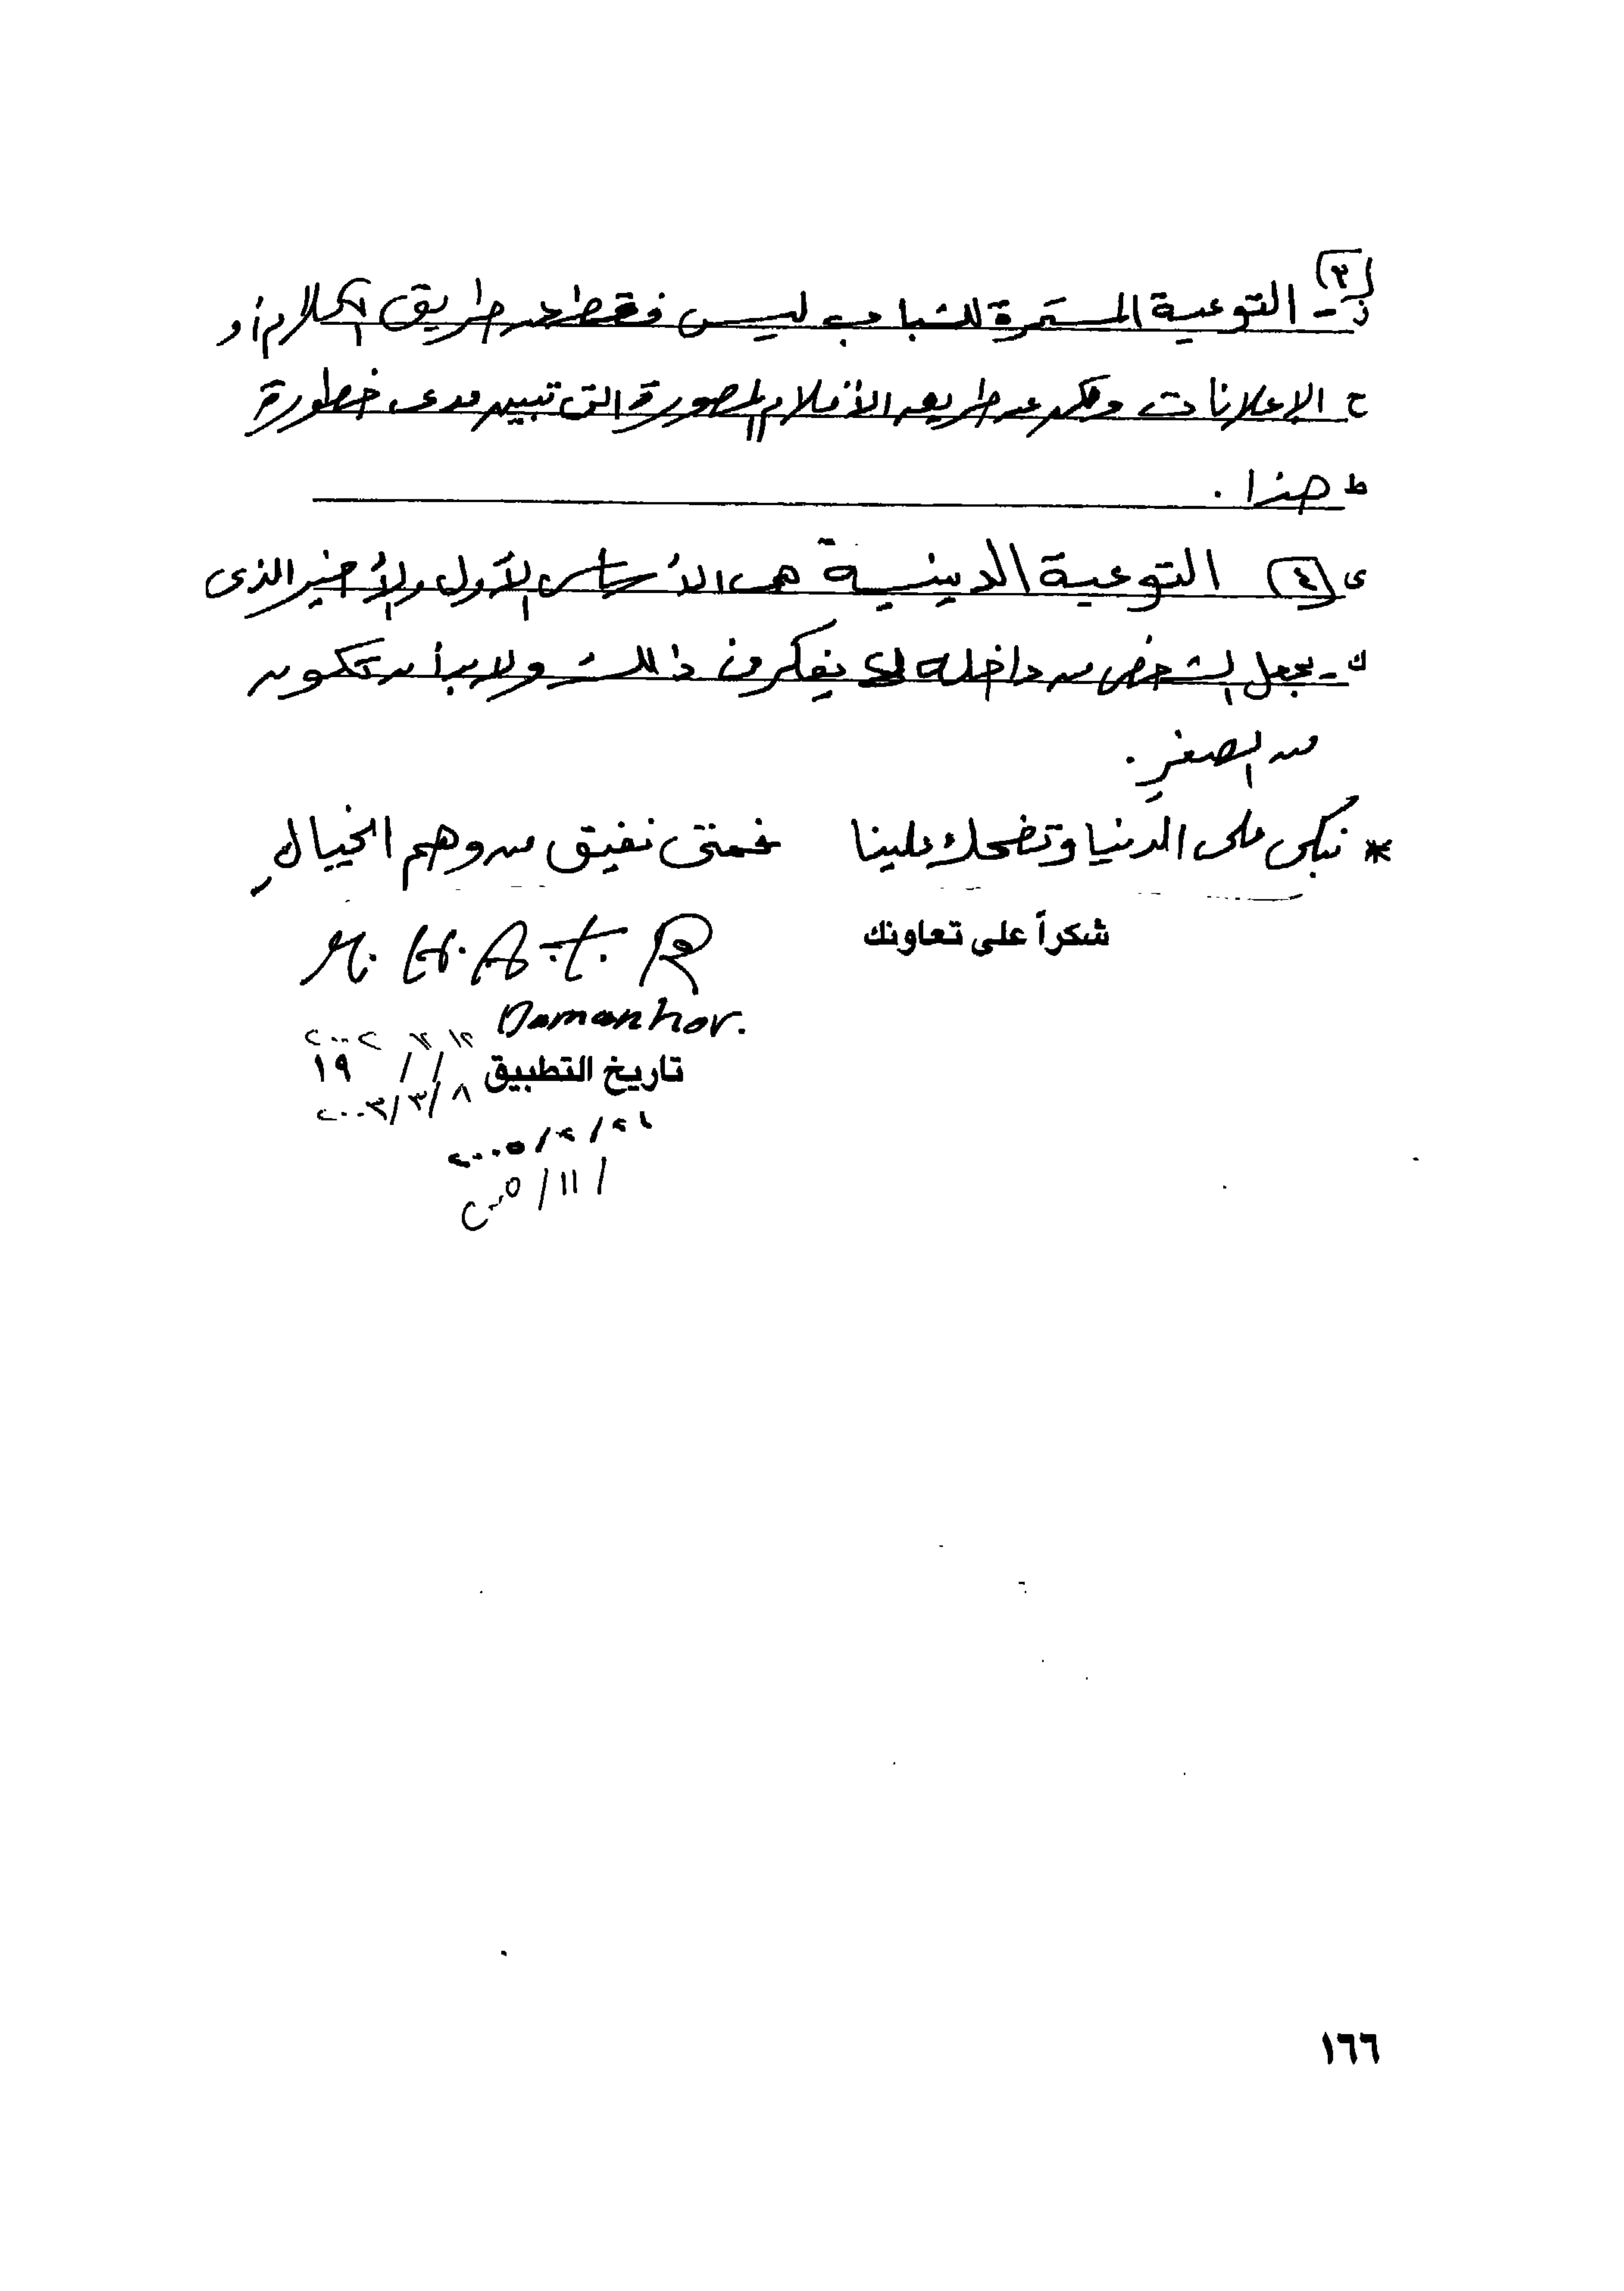 (٣)
ز - التوعية المستمرة للشباب ليس فقط عن طريق الكلام أو
ح الإعلانات ولكن عن طريق الأفلام المصورة التى تبين مدى خطورة
ط هذا .
ى (٤) التوعية الدينية هى الأساس الأول والأخير الذى
ك - يجعل الشخص من داخله لا يفكر فى ذلك ولابد أن تكون
من الصغر .
* نبكى على الدنيا وتضحك علينا فمتى نفيق من وهم الخيال
شكراً على تعاونك
M. H. A. t. R
Damanhor.
٢٠٠٢
تاريخ التطبيق / / ١٩
٢٠٠٣/٣/٨
٢٠٠٥/٢/٢٦
٢٠٠٥/١١/
١٦٦